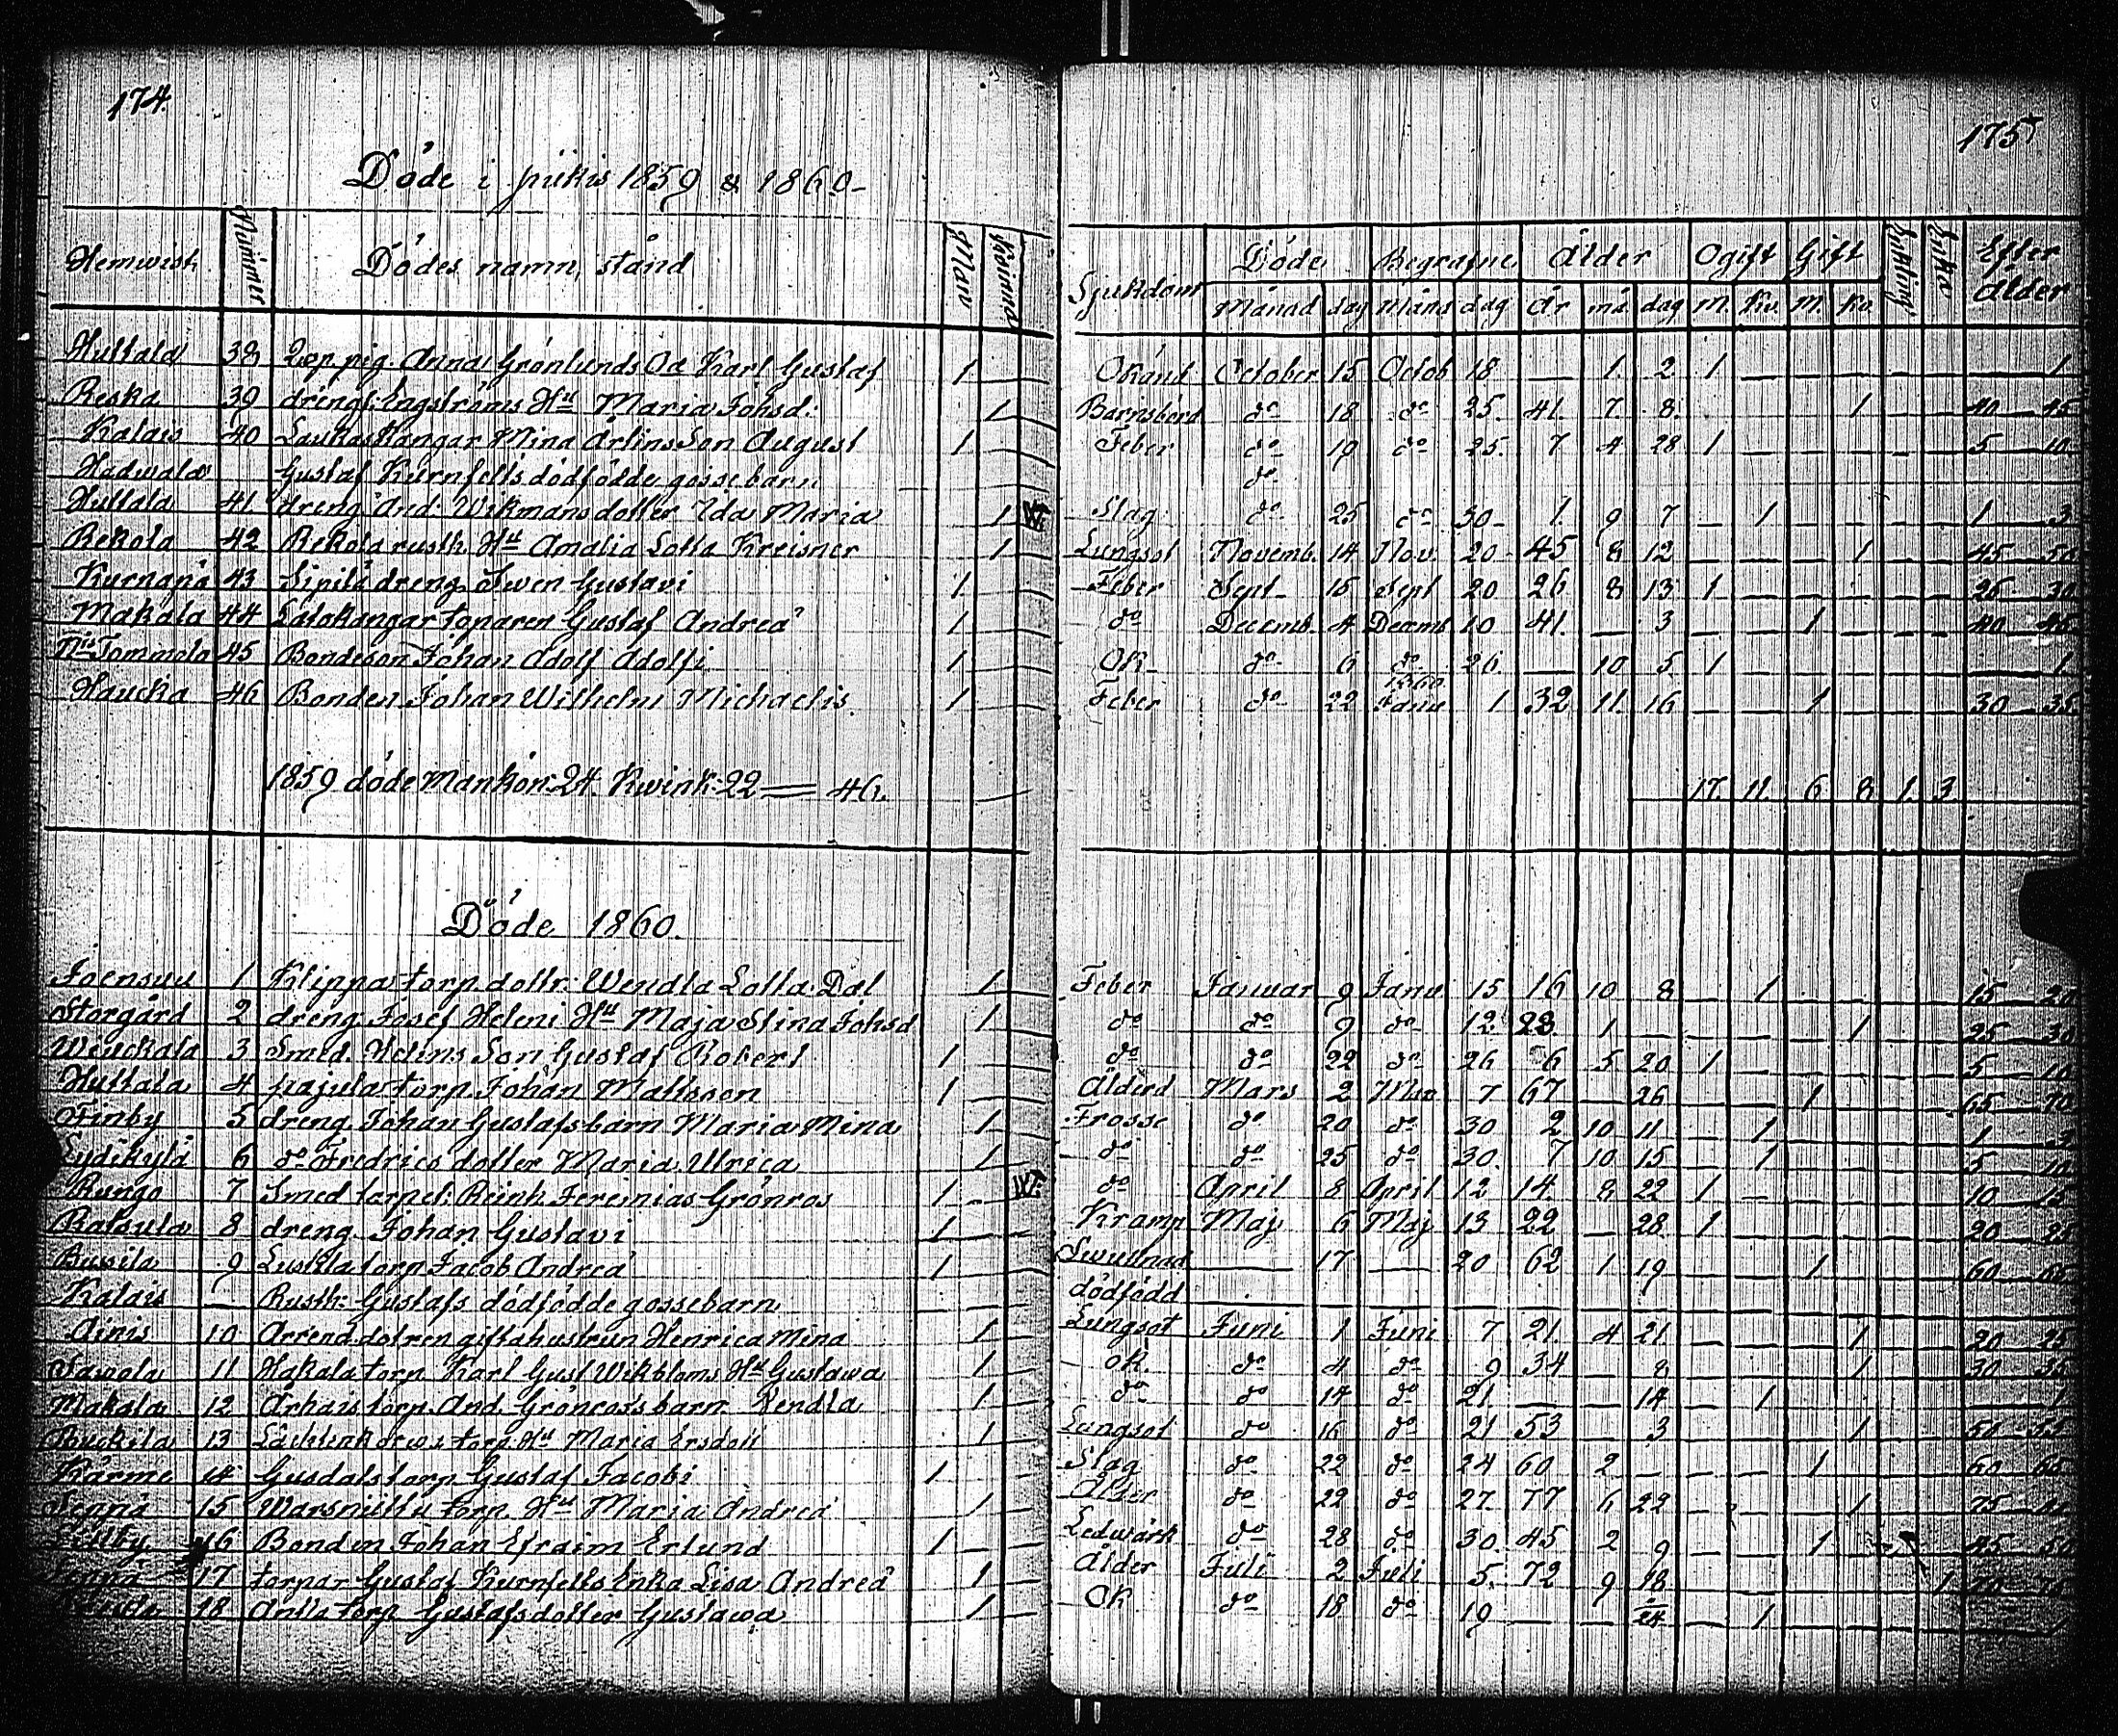 174.
175
Döde i piikis 1859 & 1860
Hemwist Nummer Dödes namn, stånd Man Kvinnor Sjukdom Döde Begrafne Ålder Ogift Gift Enkling Enka Efter Ålder
Månad dag Måns dag År må dag M. Kv. M. Kv.
Huttala 38 pig. Anna Grönlunds Oä Karl Gustaf 1 Okänd October 15 Octob 18 — 1. 2 1 — 1
Reska 39 drengf. Engströms Hu Maria Johsd. 1 Barnsbörd do 18 do 25. 41. 7 8. 1 40 45
Kalais 40 Mina Son August 1 Feber do 19 do 25. 7 4 28 1 5 10
Hadwala Gustaf Kurnfelts dödfödde gossebarn do
Huttala 41 dreng And. Wikmans dotter Ida Maria 1 Slag do 25 do 30 1. 9 7 — 1 1 3
Rekola 42 Rekola rusth. Hu Amalia Lotta Kreisner 1 Lungsot Novemb. 14 Nov. 20 45 8 12 1 45 50
43 Sipilä dreng Swen Gustavi 1 Feber Sept 15 Sept 20 26 8 13 1 26 30
Makala 44 Gustaf Andreä 1 do Decemb. 4 Decemb 10 41. — 3 1 40 45
Tommola 45 Bondeson Johan Adolf Adolfi 1 Ok do 6 do 26. — 10 5 1 1
Haucka 46 Bonden Johan Wilhelm Michaelis 1 Feber do 22 1860 Janu 1 32 11. 16 1 30 35
1859 döde Mankön: 24. Kwink: 22 = 46. 17. 11. 6 8 1. 3.
Döde 1860.
Joensuu 1 Klippa torp. dottr: Wendla Lotta Dal 1 Feber Januar 9 Janu 15 16 10 8 — 1 15 20
Storgård 2 dreng Josef Heleni Hu Maja Stina Johsd 1 do do 9 do 12. 28. 1 — 1 25 30
3 Smed Son Gustaf Robert 1 do do 22 do 26 6 5 20 1 5 10
Huttala 4 pajula torp. Johan Mattsson 1 Mars 2 Mar 7 67 — 26 1 65 70
Finby 5 dreng Johan Gustafs barn Maria Mina 1 Frosse do 20 do 30 2 10 11 — 1 1
6 do Fredrics dotter Maria Ulrica 1 do do 25 do 30. 7 10 15 — 1 5 10
Rungo 7 Smed Reinh. Jeremias Grönros 1 do April 8 April 12 14. 8 22 1 10 15
8 dreng Johan Gustavi 1 Kramp Maj 6 Maj 13 22 — 28. 1 20 25
9 torp Jacob Andreä 1 Swullnad — 17 — 20 62 1 19 1 60 65
Kalais — Rusth: Gustafs dödfödde gossebarn dödfödd
Ainis 10 gifta hustrun Henrica Mina 1 Lungsot Juni 1 Juni 7 21. 4 21 1 20 25
11 Hakala torp Karl Gust Wikbloms Hu Gustawa 1 ok. do 4 do 9 34 — 8 1 30 35
Makala 12 torp. And. Grönroos barn Vendla 1 do do 14 do 21. — — 14 — 1 1
13 torp. Hu Maria 1 Lungsot do 16 do 21 53 — 3 1 50 55
Kärme 14 Gusdals torp Gustaf Jacobi 1 Slag do 22 do 24 60 2 — 1 60 65
15 torp. Hu Maria Andreä 1 Ålder do 22 do 27. 77 6 22 1 75
16 Bonden Johan Efraim Erlund 1 Ledwärk do 28 do 30. 45 2 9 1 45 50
17 torpar Gustaf Kurnfelts Enka Lisa Andreä 1 Ålder Juli 2 Juli 5. 72 9 18 1 70 75
18 Antla torp Gustafs dotter Gustawa 1 Ok do 18 do 19 — — 24 — 1